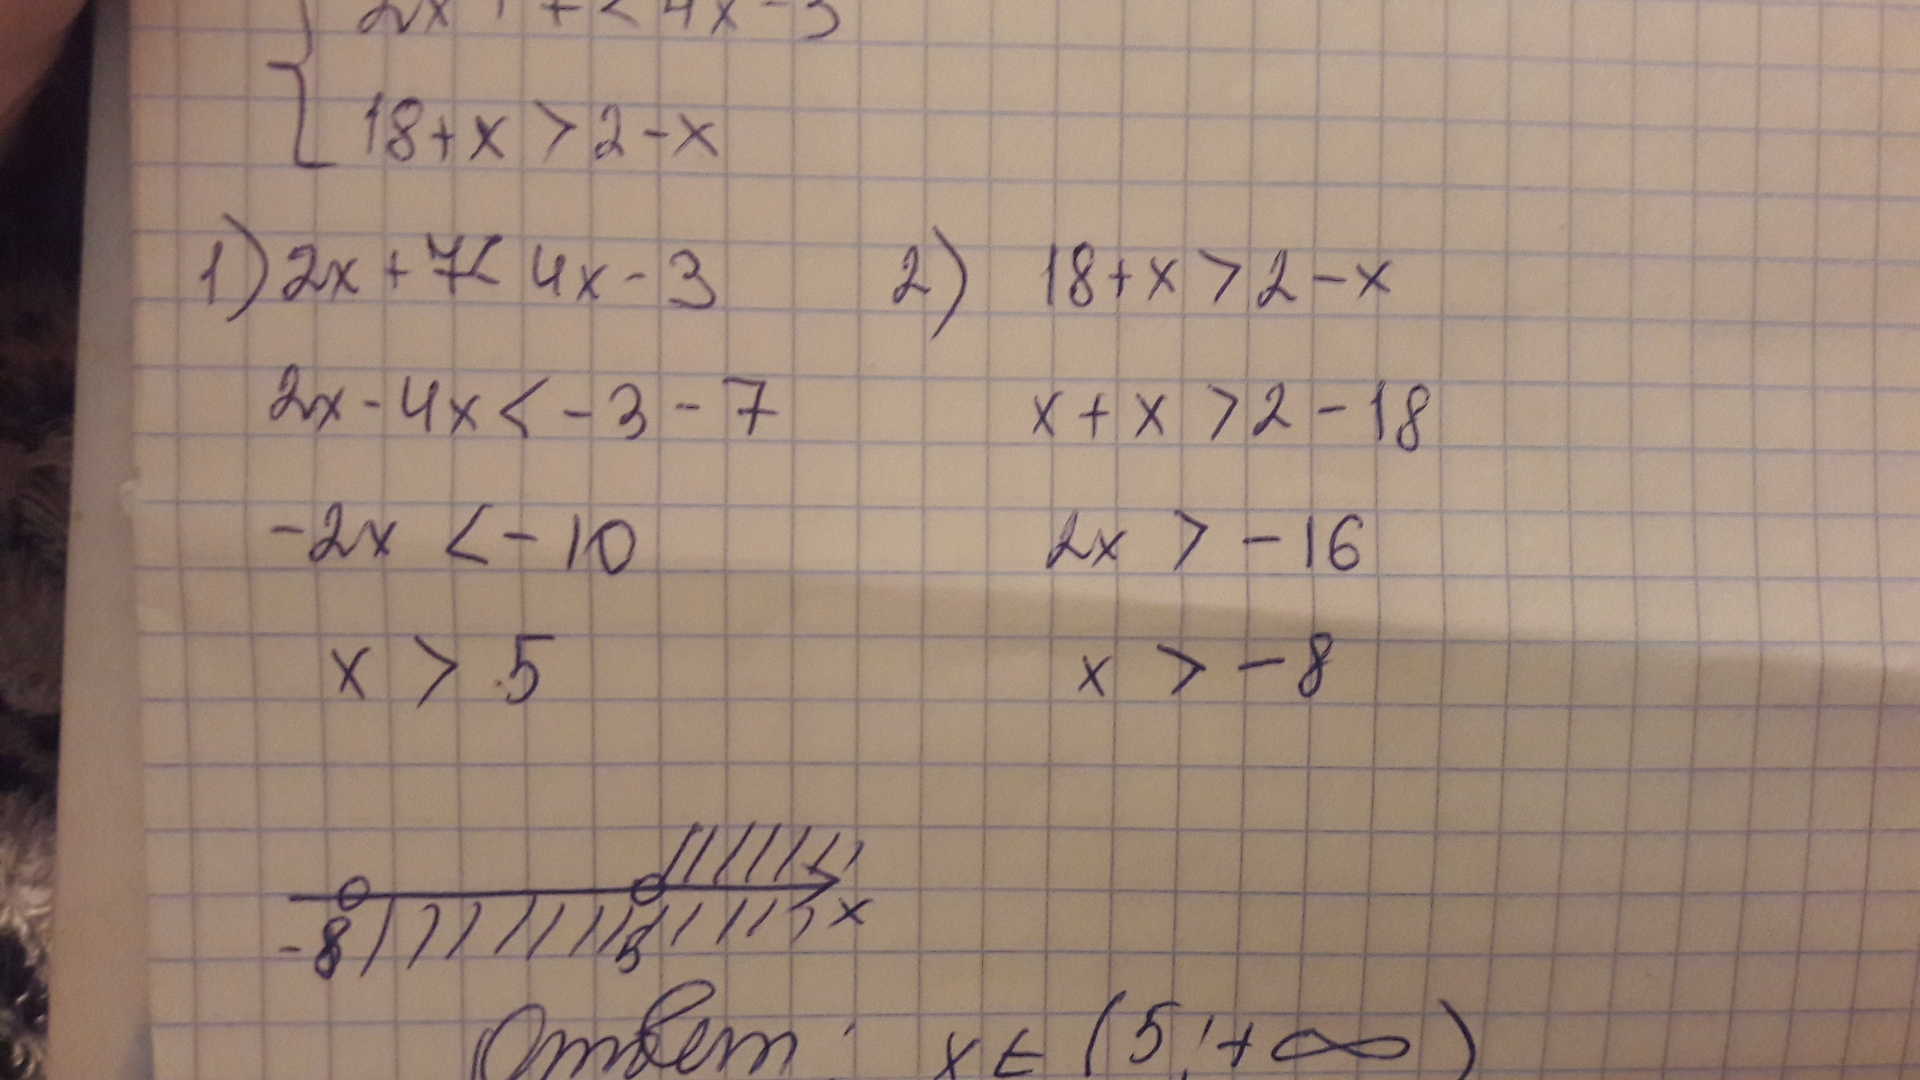 2x + 7 < 4x - 3
18+x > 2-x
1) 2x + 7 < 4x - 3
2) 18+x > 2-x
2x - 4x < -3 - 7
x + x > 2 - 18
-2x < -10
2x > -16
x > 5
x > -8
-8 5 x
Ответ: x ∈ (5; +∞)